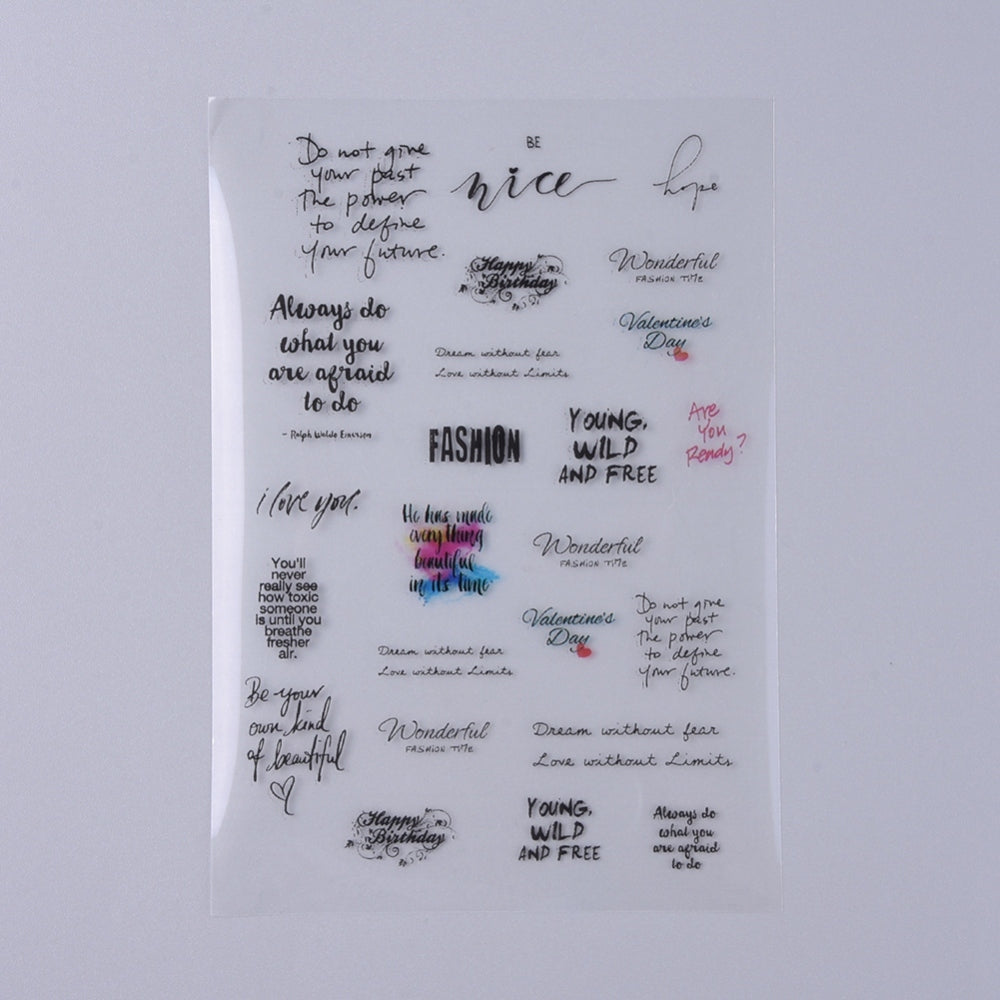 Do not give
your past
the power
to define
your future.
BE
nice
hope
Happy
Birthday
Wonderful
FASHION TIME
Always do
what you
are afraid
to do
- Ralph Waldo Emerson
Valentine's
Day
Dream without fear
Love without Limits
FASHION
YOUNG,
WILD
AND FREE
Are
you
Ready?
i love you.
He has made
everything
beautiful
in its time
Wonderful
FASHION TIME
You'll
never
really see
how toxic
someone
is until you
breathe
fresher
air.
Valentine's
Day
Do not give
your past
the power
to define
your future.
Dream without fear
Love without Limits
Be your
own kind
of beautiful
Wonderful
FASHION TIME
Dream without fear
Love without Limits
Happy
Birthday
YOUNG,
WILD
AND FREE
Always do
what you
are afraid
to do